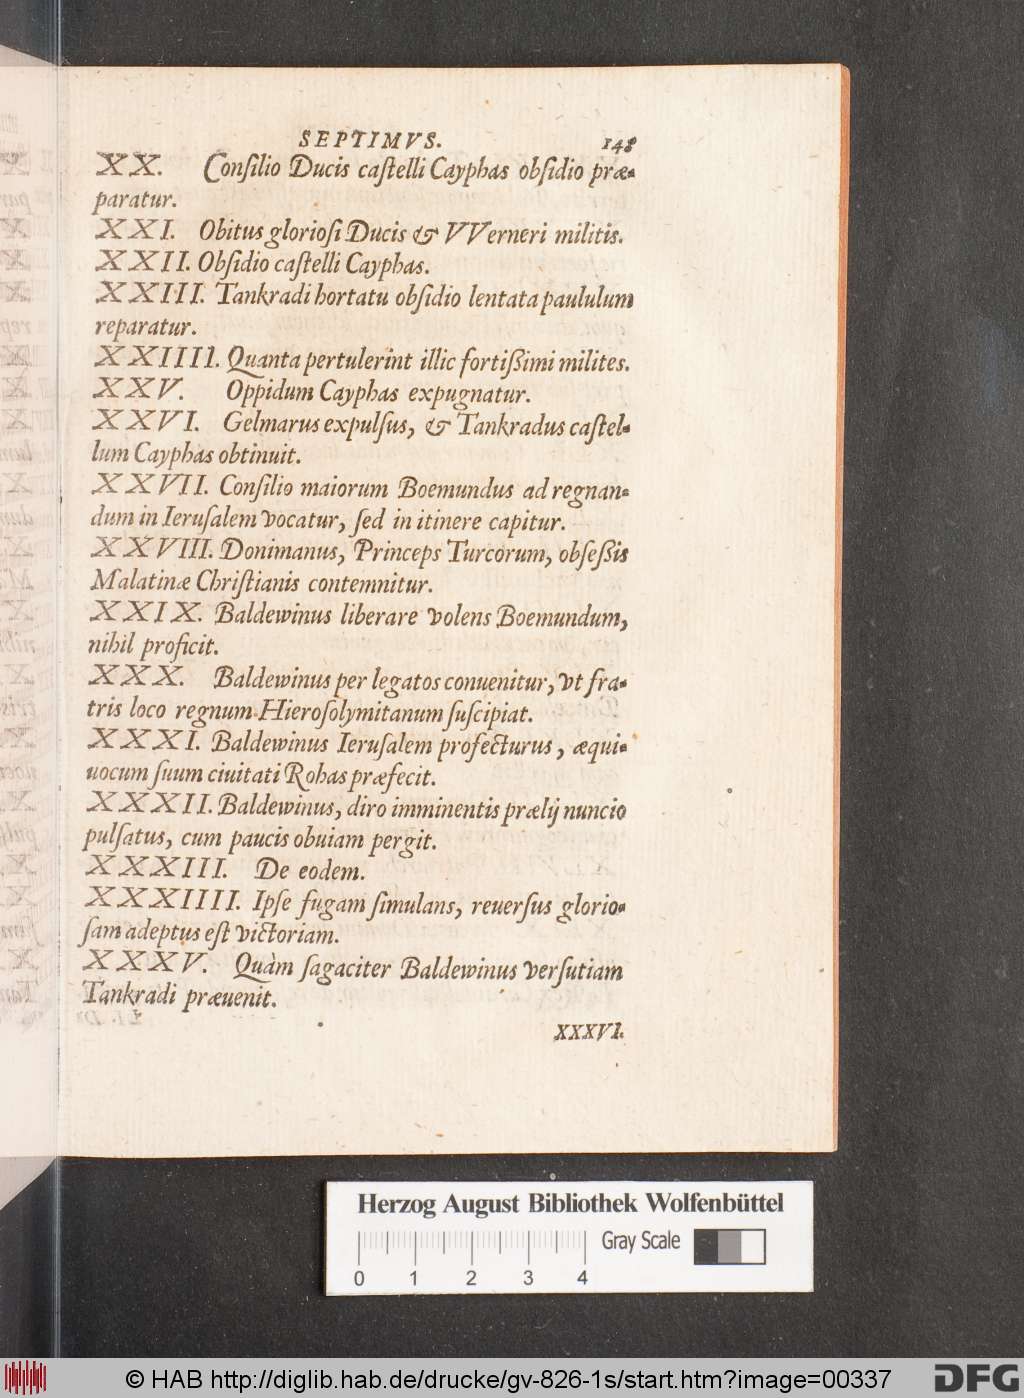 SEPTIMVS. 148
XX. Conſilio Ducis caſtelli Cayphas obſidio præ-
paratur.
XXI. Obitus glorioſi Ducis & VVerneri militis.
XXII. Obſidio caſtelli Cayphas.
XXIII. Tankradi hortatu obſidio lentata paululum
reparatur.
XXIIII. Quanta pertulerint illic fortißimi milites.
XXV. Oppidum Cayphas expugnatur.
XXVI. Gelmarus expulſus, & Tankradus caſtel-
lum Cayphas obtinuit.
XXVII. Conſilio maiorum Boemundus ad regnan-
dum in Ieruſalem vocatur, ſed in itinere capitur.
XXVIII. Donimanus, Princeps Turcorum, obſeßis
Malatinæ Chriſtianis contemnitur.
XXIX. Baldewinus liberare volens Boemundum,
nihil proficit.
XXX. Baldewinus per legatos conuenitur, vt fra-
tris loco regnum Hieroſolymitanum ſuſcipiat.
XXXI. Baldewinus Ieruſalem profecturus, æqui-
uocum ſuum ciuitati Rohas præfecit.
XXXII. Baldewinus, diro imminentis prælij nuncio
pulſatus, cum paucis obuiam pergit.
XXXIII. De eodem.
XXXIIII. Ipſe fugam ſimulans, reuerſus glorio-
ſam adeptus eſt victoriam.
XXXV. Quàm ſagaciter Baldewinus verſutiam
Tankradi præuenit.
XXXVI.
Herzog August Bibliothek Wolfenbüttel
Gray Scale
0 1 2 3 4
© HAB http://diglib.hab.de/drucke/gv-826-1s/start.htm?image=00337
DFG